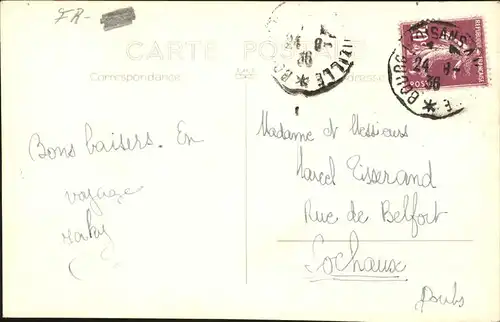 FR-
CARTE POSTALE
Correspondance
Adresse
24 8
36
24 8
36
REPUBLIQUE FRANCAISE
POSTES
Bons baisers. En
voyage
Madame et Messieurs
Marcel Tisserand
Rue de Belfort
Sochaux
Doubs